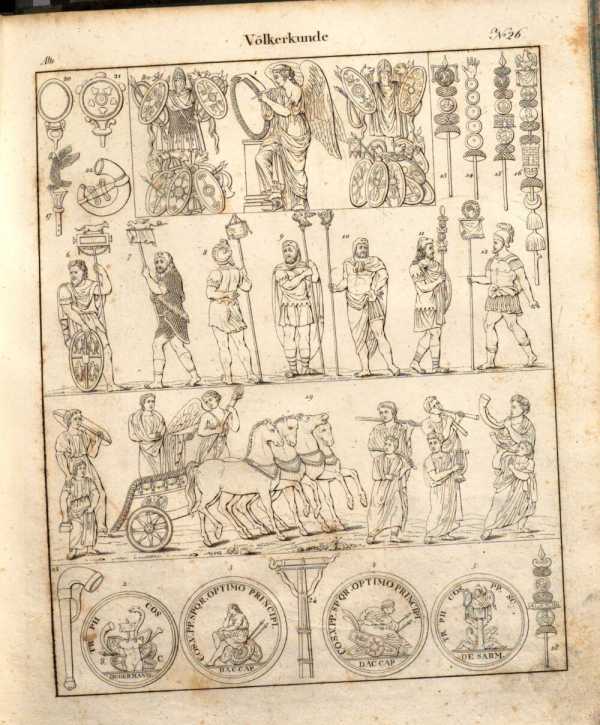 Völkerkunde
No 26
Alte
20
21
1
22
17
13
14
15
16
6
7
8
9
10
11
12
19
23
2
TR PH COS
S. C
DE GERMANIS
3
COS.V.PP.SPQR.OPTIMO PRINCIPI.
DAC CAP
24
4
COS.V.PP.SPQR.OPTIMO PRINCIPI.
DAC CAP
5
TR PH COS PP. SC.
DE SARM
18